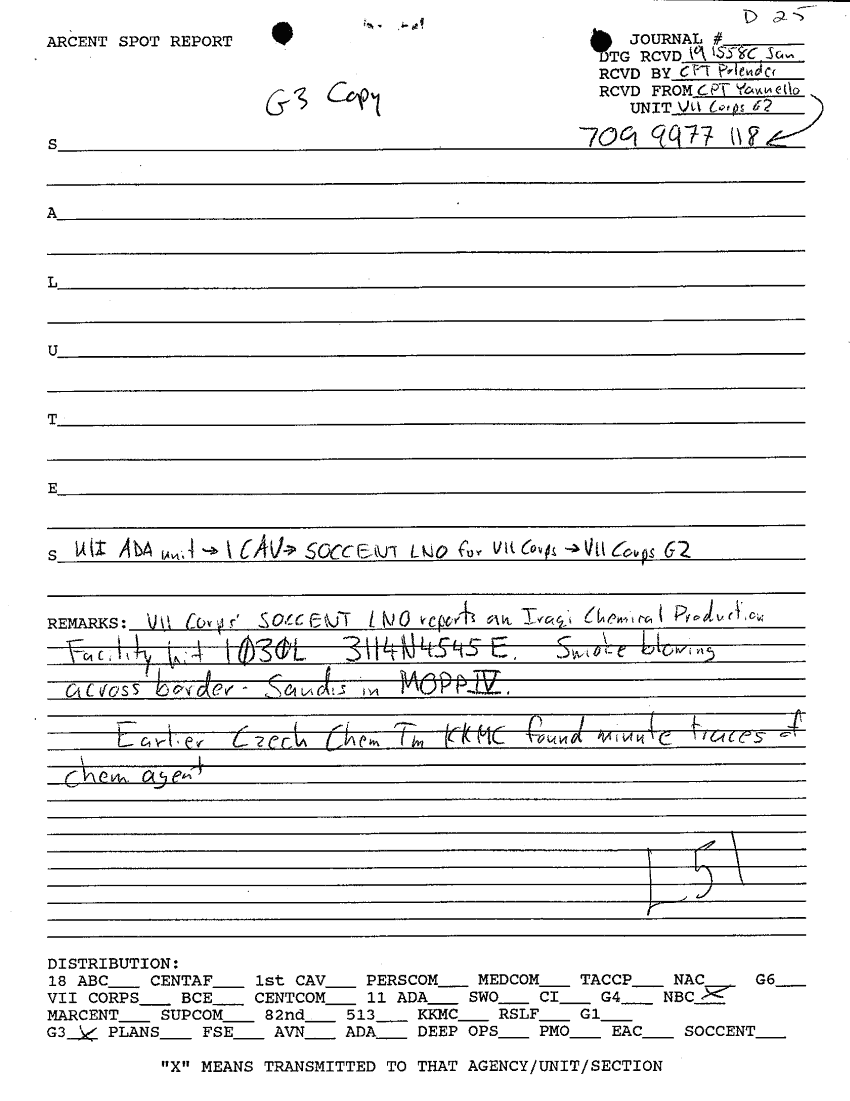 D 25
ARCENT SPOT REPORT
JOURNAL #
DTG RCVD 191558C Jan
RCVD BY CPT Polender
RCVD FROM CPT Yannello
UNIT VII Corps G2
G3 Copy
709 9977 118
S
A
L
U
T
E
S UUI ADA unit → 1 CAV → SOCCENT LNO for VII Corps → VII Corps G2
REMARKS: VII Corps' SOCCENT LNO reports an Iraqi Chemical Production
Facility hit 1030L 3114N4545E. Smoke blowing
across border - Saudis in MOPP IV.
Earlier Czech Chem Tm KKMC found minute traces of
chem agent
5
DISTRIBUTION:
18 ABC___ CENTAF___ 1st CAV___ PERSCOM___ MEDCOM___ TACCP___ NAC___ G6___
VII CORPS___ BCE___ CENTCOM___ 11 ADA___ SWO___ CI___ G4___ NBC X
MARCENT___ SUPCOM___ 82nd___ 513___ KKMC___ RSLF___ G1___
G3 X PLANS___ FSE___ AVN___ ADA___ DEEP OPS___ PMO___ EAC___ SOCCENT___
"X" MEANS TRANSMITTED TO THAT AGENCY/UNIT/SECTION